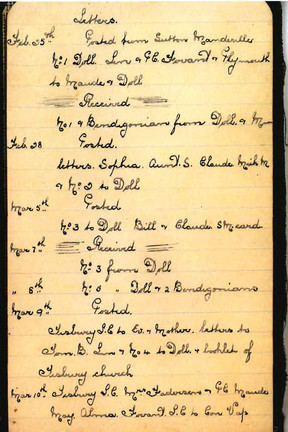 Letters.
Feb. 25th Posted from Sutton Mandeville
No 1 Doll. Lin & P.C. Fovant & Plymouth
to Maude & Doll
Received
No 1 & Bendigonian from Doll. &
Feb. 28 Posted.
letters. Sophia. Aunt S. Claude Mick M
& No 2 to Doll
Mar 5th Posted
No 3 to Doll Bill & Claude
Mar 7th Received
No 3 from Doll
" 8th No " Doll & 2 Bendigonians
Mar 9th Posted.
Tisbury P.C to Ev. & Mother. letters to
Tom. B. Lin & No 4 to Doll & booklet of
Tisbury church
Mar 10th Tisbury P.C. Mrs & P.C. Maude
May Alma. Fovant P.C to